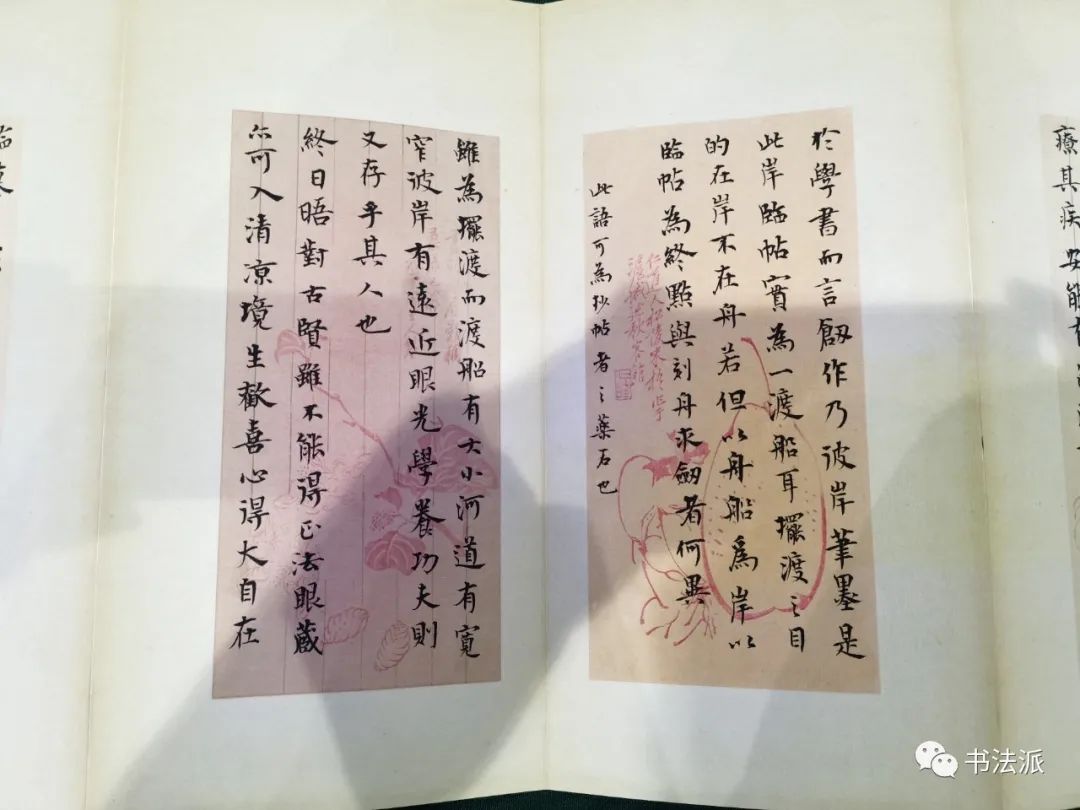 療其疾安能
於學書而言創作乃彼岸筆墨是
此岸臨帖實為一渡船耳擺渡之目
的在岸不在舟若但以舟船為岸以
臨帖為終點與刻舟求劔者何異
此語可為抄帖者之藥石也
雖為擺渡而渡船有大小河道有寬
窄彼岸有遠近眼光學養功夫則
又存乎其人也
終日晤對古賢雖不能得正法眼藏
亦可入清凉境生歡喜心得大自在
臨摹
书法派